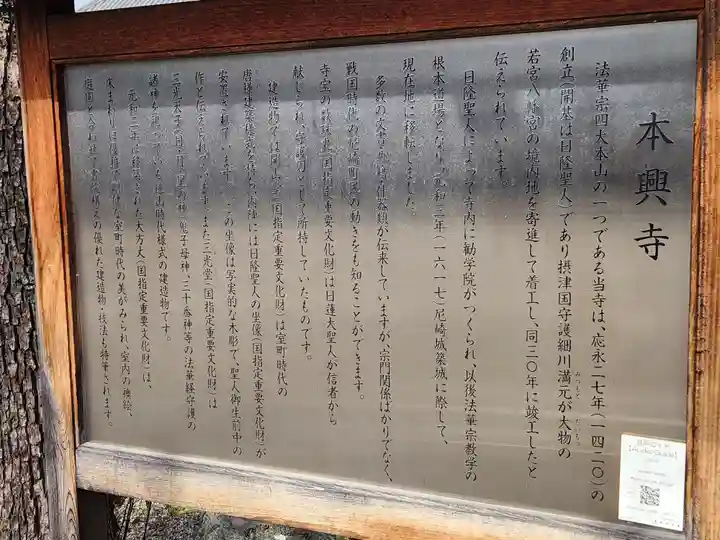 本興寺
法華宗四大本山の一つである当寺は、応永二七年(一四二〇)の
創立(開基は日隆聖人)であり摂津国守護細川満元が大物の
みつもと
だいもつ
若宮八幡宮の境内地を寄進して着工し、同三〇年に竣工したと
伝えられています。
日隆聖人によって寺内に勧学院がつくられ、以後法華宗教学の
根本道場となり、元和三年(一六一七)尼崎城築城に際して、
現在地に移転しました。
多数の文書が伝来していますが、宗門関係ばかりでなく、
戦国時代の尼崎町民の動きをも知ることができます。
寺宝の数珠丸(国指定重要文化財)は日蓮大聖人が信者から
献じられ、守護刀として所持していたものです。
建造物では開山堂(国指定重要文化財)は室町時代の
唐様建築様式を持ち、内陣には日隆聖人の坐像(国指定重要文化財)が
安置されています。この坐像は写実的な木彫で、聖人御生前中の
作と伝えられています。また三光堂(国指定重要文化財)は
三光天子、鬼子母神、三十番神等の法華経守護の
諸神を祀っている桃山時代様式の建造物です。
元和三年に移築された大方丈(国指定重要文化財)は、
な室町時代の美がみられ、室内の襖絵、
の優れた建造物・技法も特筆されます。